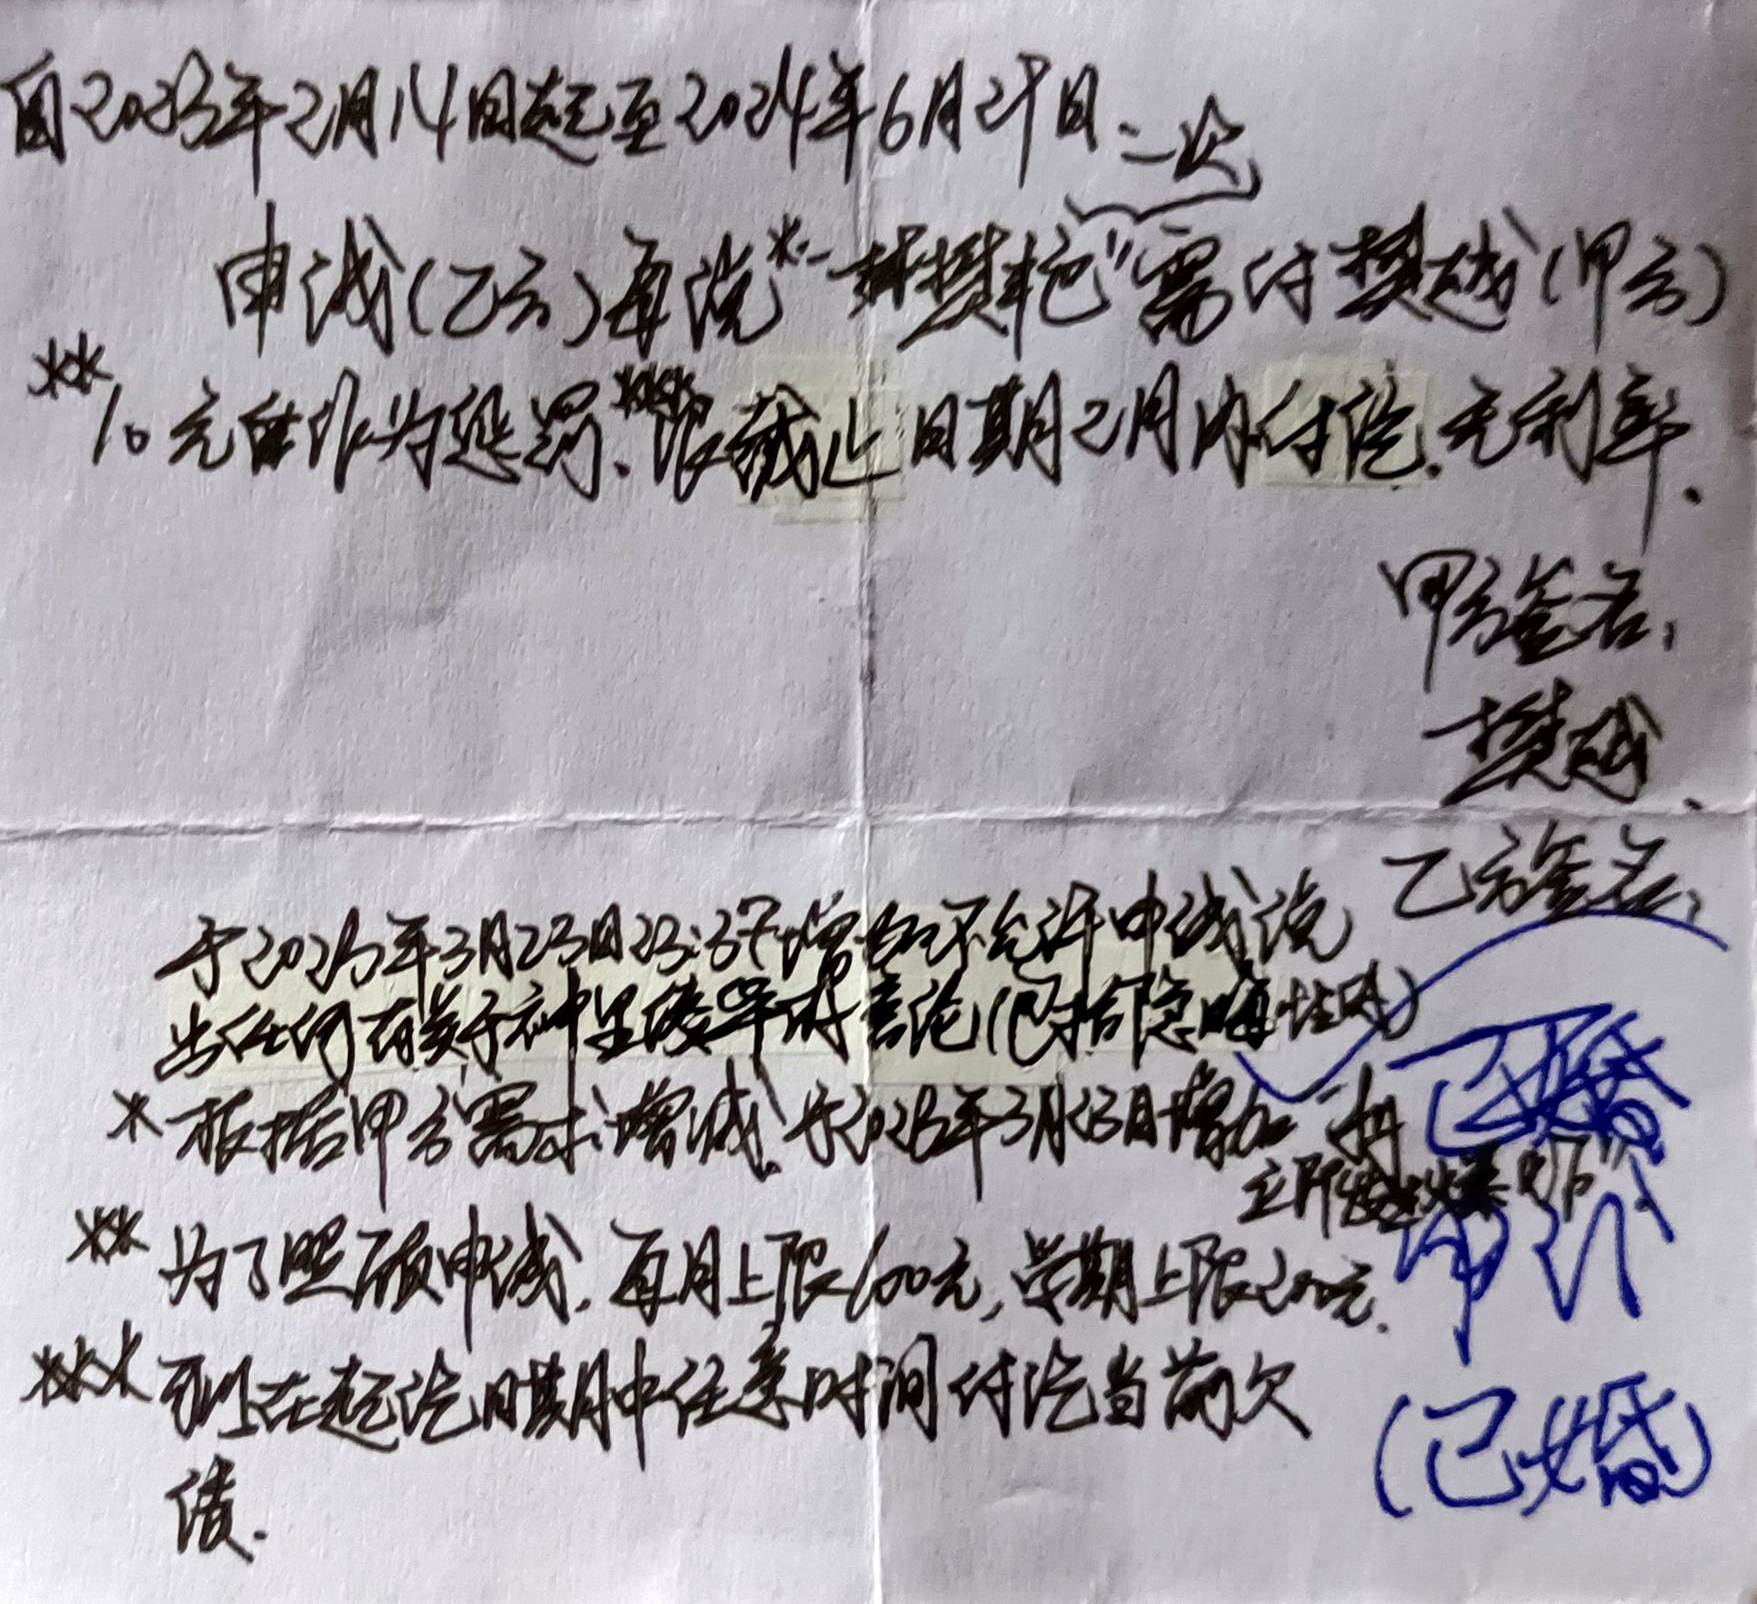 自2023年2月14日起至2024年6月29日.
一次
申诚(乙方)再说*"樊艳"需付樊越(甲方)
**10元作为惩罚.***限截止日期2月内付讫.无利率.
甲方签名:
樊越
乙方签名:
于2023年3月23日23:37增加不允许申诚说
出任何有关于种里俊平的言论(包括隐晦性的)
*根据甲方需求增减.于2023年3月23日增加"
立即
**为了照顾申诚.每月上限100元,学期上限200元.
***可以在起讫日期中任意时间付讫当前欠
债.
已婚
(已婚)